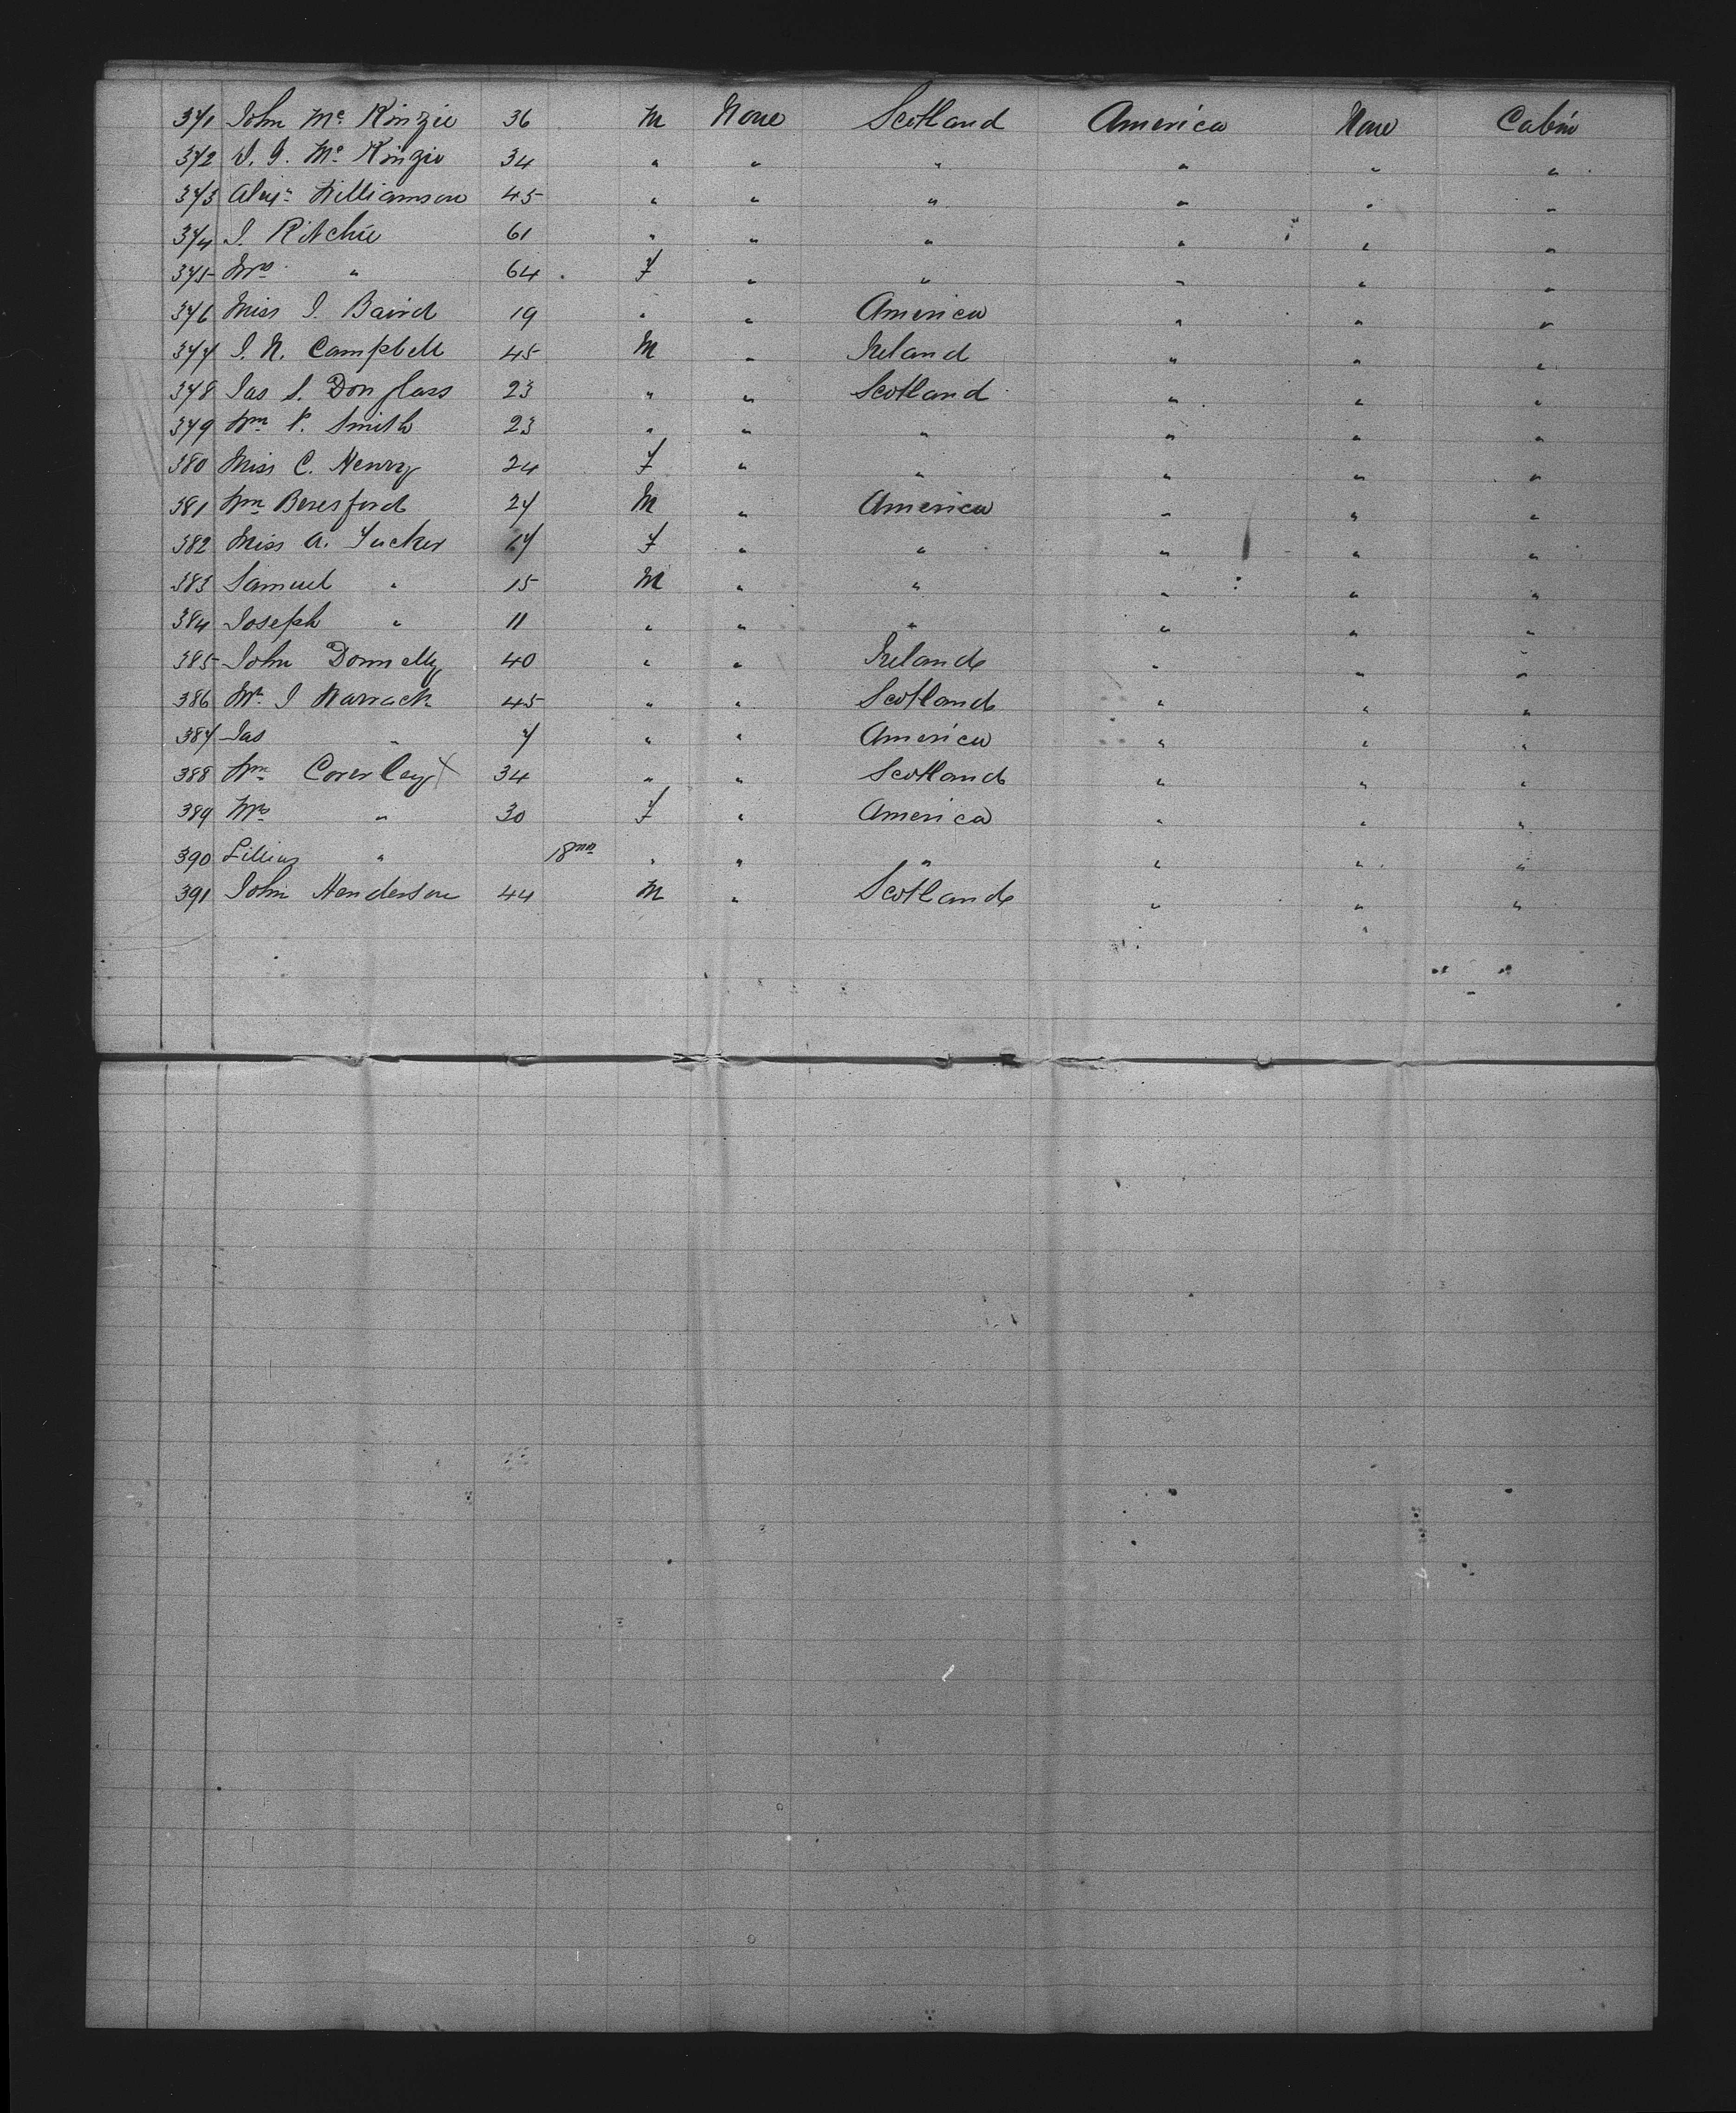 371 John McKinzie 36 M None Scotland America None Cabin
372 D. G. McKinzie 34 " " " " " "
373 Alexr Williamson 45 " " " " " "
374 J. Ritchie 61 " " " " " "
375 Mrs " 64 F " " " " "
376 Miss J. Baird 19 " " America " " "
377 J. N. Campbell 45 M " Ireland " " "
378 Jas S. Douglass 23 " " Scotland " " "
379 Wm P. Smith 23 " " " " " "
380 Miss C. Henry 24 F " " " " "
381 Wm Beresford 27 M " America " " "
382 Miss A. Tucker 17 F " " " " "
383 Samuel " 15 M " " " " "
384 Joseph " 11 " " " " " "
385 John Donnelly 40 " " Ireland " " "
386 Mr. J Warrack 45 " " Scotland " " "
387 Jas " 7 " " America " " "
388 Wm Coverley X 34 " " Scotland " " "
389 Mrs " 30 F " America " " "
390 Lilias " 18 mo " " " " " "
391 John Henderson 44 M " Scotland " " "